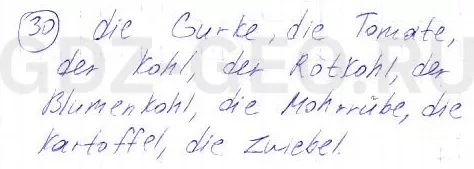 30 die Gurke, die Tomate,
der Kohl, der Rotkohl, der
Blumenkohl, die Mohrrübe, die
Kartoffel, die Zwiebel.